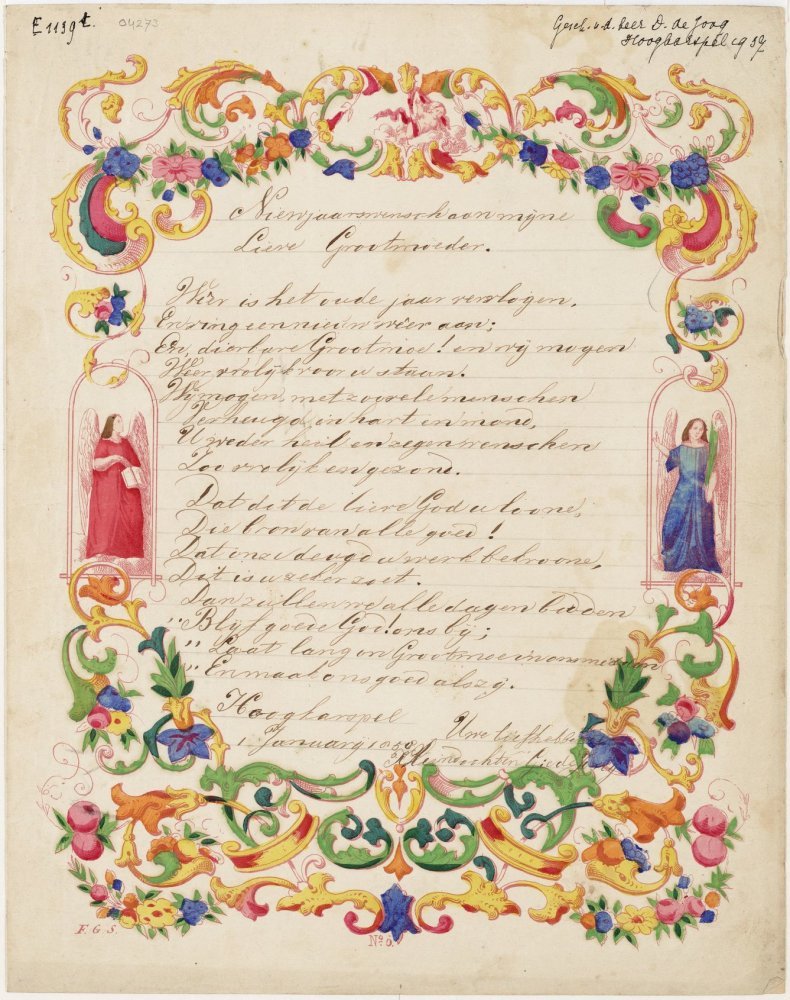 E 1139 t.
04273
Gesch. v. d. heer D. de Jong
Hoogkarspel 1957
Nieuwjaarswensch aan mijne
Lieve Grootmoeder.
Weer is het oude jaar vervlogen,
En ving een nieuw weer aan;
En, dierbare Grootmoe! en wij mogen
Weer vrolijk voor u staan.
Wij mogen met zoovele menschen
Verheugd in hart en mond,
U weder heil en zegen wenschen
Zoo vrolijk en gezond.
Dat dit de lieve God u loone,
Die bron van alle goed!
Dat onze deugd u werk bekroone,
Dit is u zeker zoet.
Dan zullen we alle dagen bidden
" Blijf goede God! ons bij;
" Laat lang on Grootmoe in ons midden
" En maak ons goed als zij.
Hoogkarspel
Uwe liefhebb
1 January 18
Kleindochter
F. G. S.
No. 6.